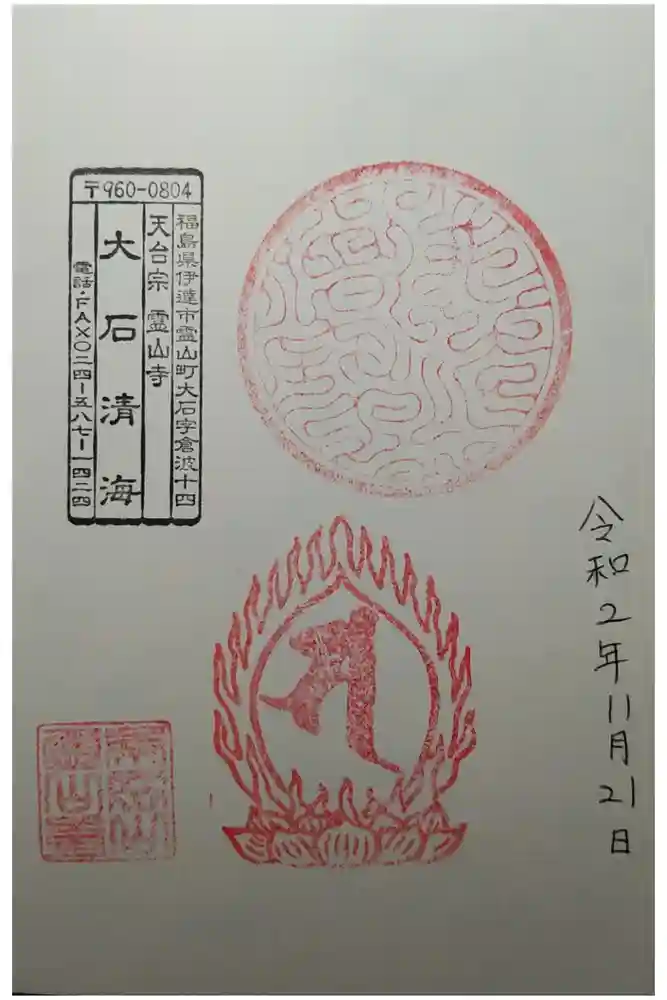 令和2年11月21日
〒960-0804
福島県伊達市霊山町大石字倉波十四
天台宗 霊山寺
大石清海
電話・FAX〇二四ー五八七ー一四二四